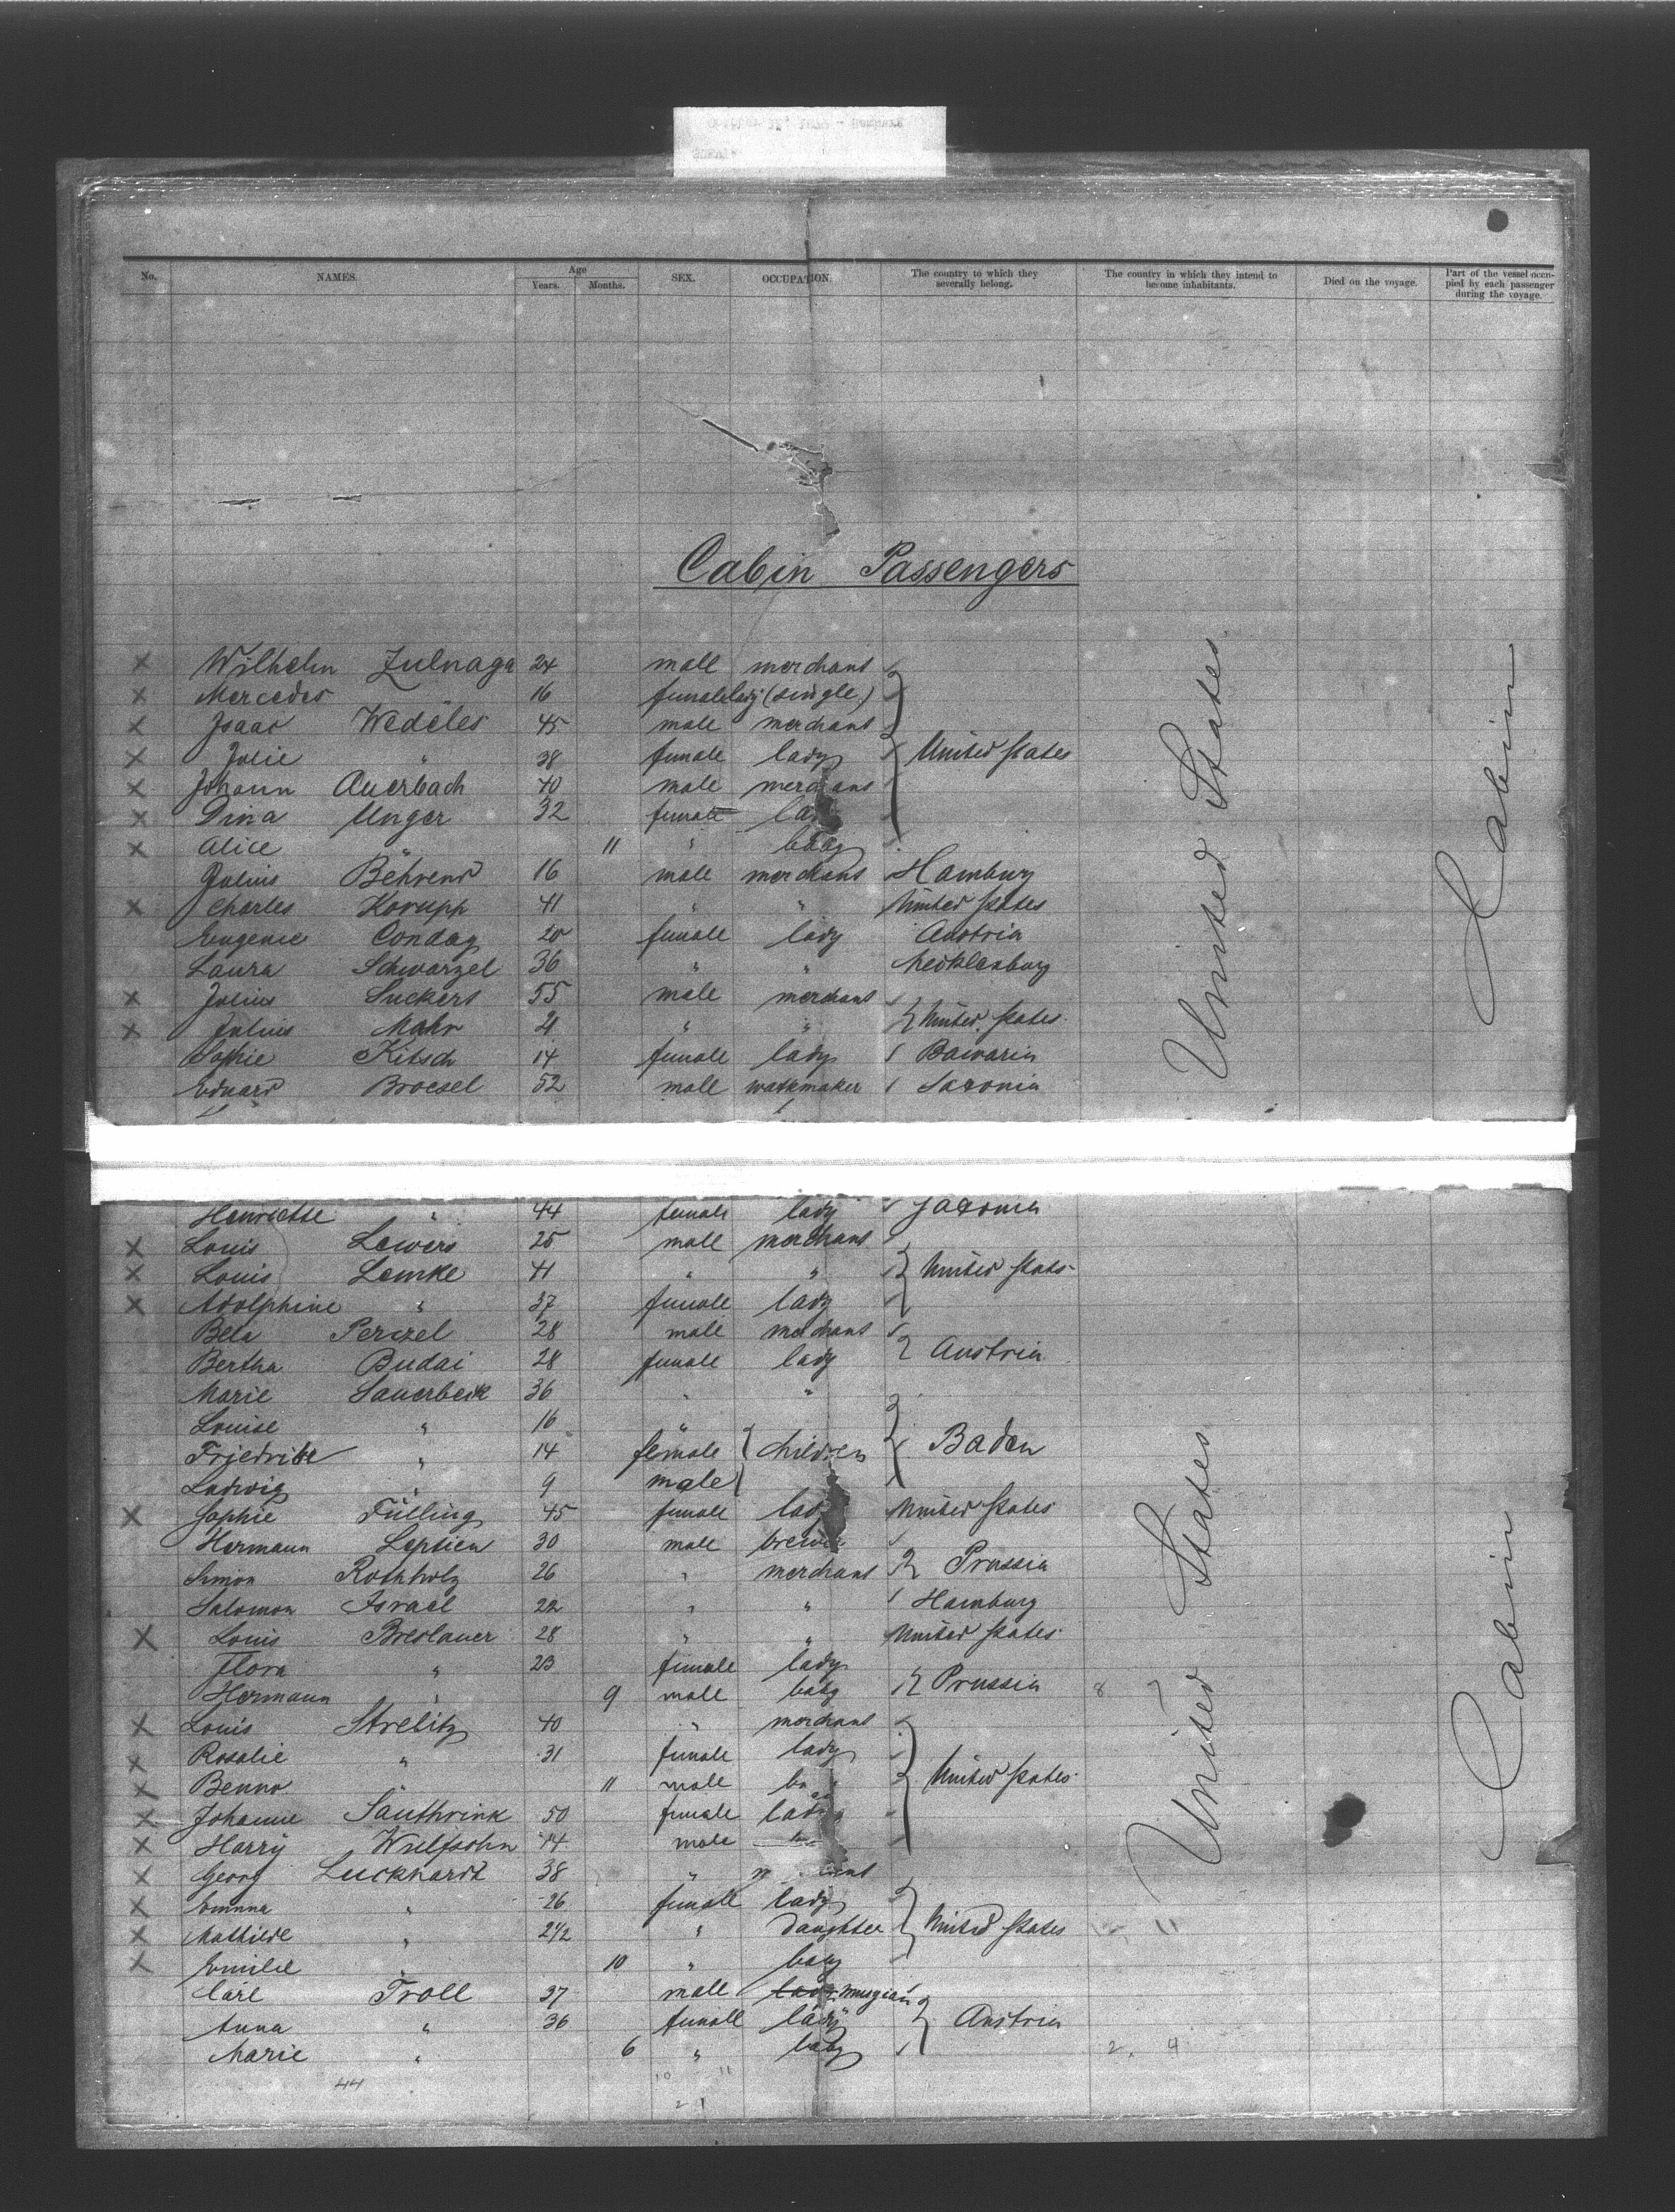 No. NAMES. Age Years. Months. SEX. OCCUPATION. The country to which they severally belong. The country in which they intend to become inhabitants. Died on the voyage. Part of the vessel occupied by each passenger during the voyage.
Cabin Passengers
× Wilhelm Zulnaga 24 male merchant
× Mercedes 16 female lady (single)
× Isaac Wedeles 45 male merchant
× Julie " 38 female lady United States
× Johann Auerbach 40 male merchant
× Dina Unger 32 female lady
× Alice " 11 " baby
Julius Behrend 16 male merchant Hamburg
× Charles Korupp 41 " " United States
Eugenie Conday 20 female lady Austria
Laura Schwarzel 36 " " Mecklenburg
× Julius Suckert 55 male merchant
× Julius Mahr 21 " " United States
Sophie Kitsch 14 female lady Bawaria
Eduard Broesel 52 male watkmaker Saxonia
United States
Cabin
Henriette " 44 female lady Saxonia
× Louis Lewers 25 male merchant
× Louis Lemke 41 " " United States
× Adolphine " 37 female lady
Bela Perczel 28 male merchant
Bertha Budai 28 female lady Austria
Marie Sauerbeck 36 " "
Louise " 16 "
Friedrike " 14 female children Baden
Ludwig " 9 male
× Sophie Fülling 45 female lady United States
Hermann Leptien 30 male brewer
Simon Rothholz 26 " merchant Prussia
Salomon Israel 22 " " Hamburg
× Louis Breslauer 28 " " United States
Flora " 23 female lady
Hermann " 9 male baby Prussia 8 7
× Louis Strelitz 40 " merchant
× Rosalie " 31 female lady
× Benno " 11 male United States
× Johanne Sauthrink 50 female lady
× Harry Wulfsohn 14 male
× Georg Luckhardt 38 "
× Emma " 26 female lady
× Mathilde " 2 1/2 " daughter United States 11
× Emilie " 10 " baby
Carl Troll 37 male musician
Anna " 36 female lady Austria
Marie " 6 " baby 2. 4
44 10 11
21
United States
Cabin